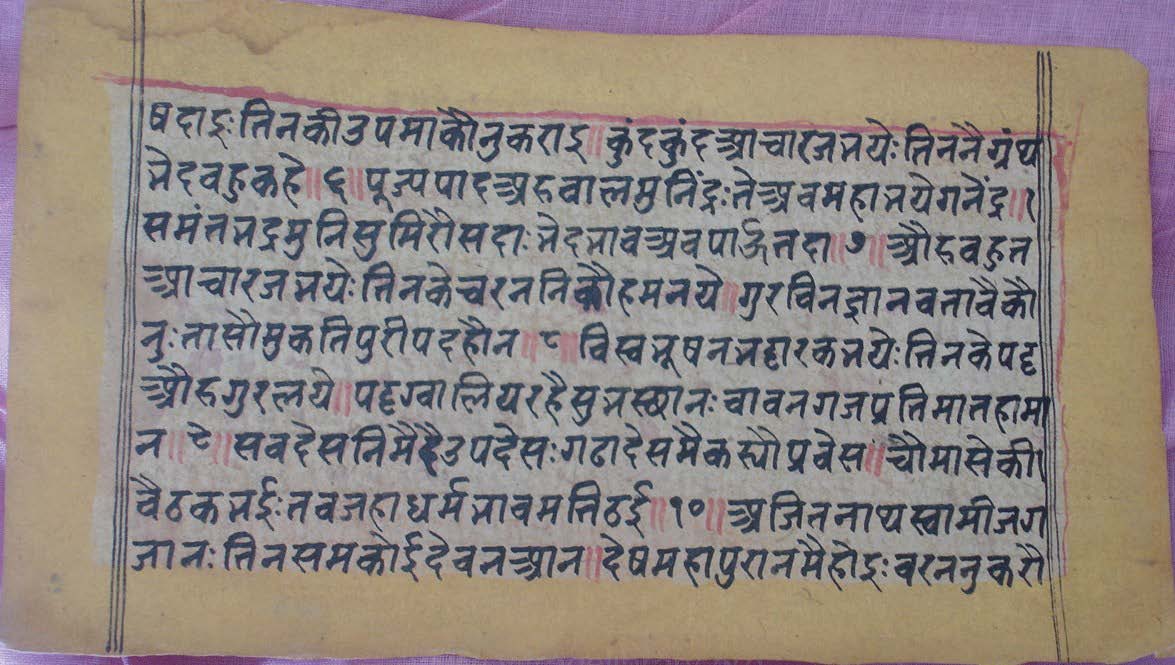 षदाइः तिनकी उपमा कौनु कराइ॥ कुंदकुंद आचारज भयेः तिननै ग्रंथ
भेद बहु कहे॥६॥ पूज्यपाद अरु वाल मुनिंद्रः ते अव महा भये गनेंद्र॥१
समंतभद्र मुनि सुमिरौ सदाः भेद भाव अव पाऊँ तदा॥७॥ औह वहुत
आचारज भयेः तिनके चरननि कौ हम नये॥ गुर विन ज्ञान वतावै कौ
नुः तासौ मुकतिपुरी पद हौन॥८॥ विस्वभूषन भट्टारक भयेः तिनके पट्ट
औह गुर लये॥ पट्ट ग्वालियर है सुभस्थानः वावन गज प्रतिमा तहा मा
न॥९॥ सव देसनि मै है उपदेसः गढा देस मै कस्यौ प्रवेस॥ चौमासे की।
वैठक भईः तव जहा धर्म भाव मति ठई॥१०॥ अजितनाथ स्वामी जग
जानः तिन सम कोई देव न आन॥ देष महापुरान मै होइः वरननु करौ